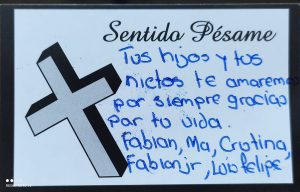 Sentido Pésame
Tus hijos y tus
nietos te amaremos
por siempre gracias
por tu vida.
Fabian, Ma, Cristina,
Fabian jr, Luis felipe